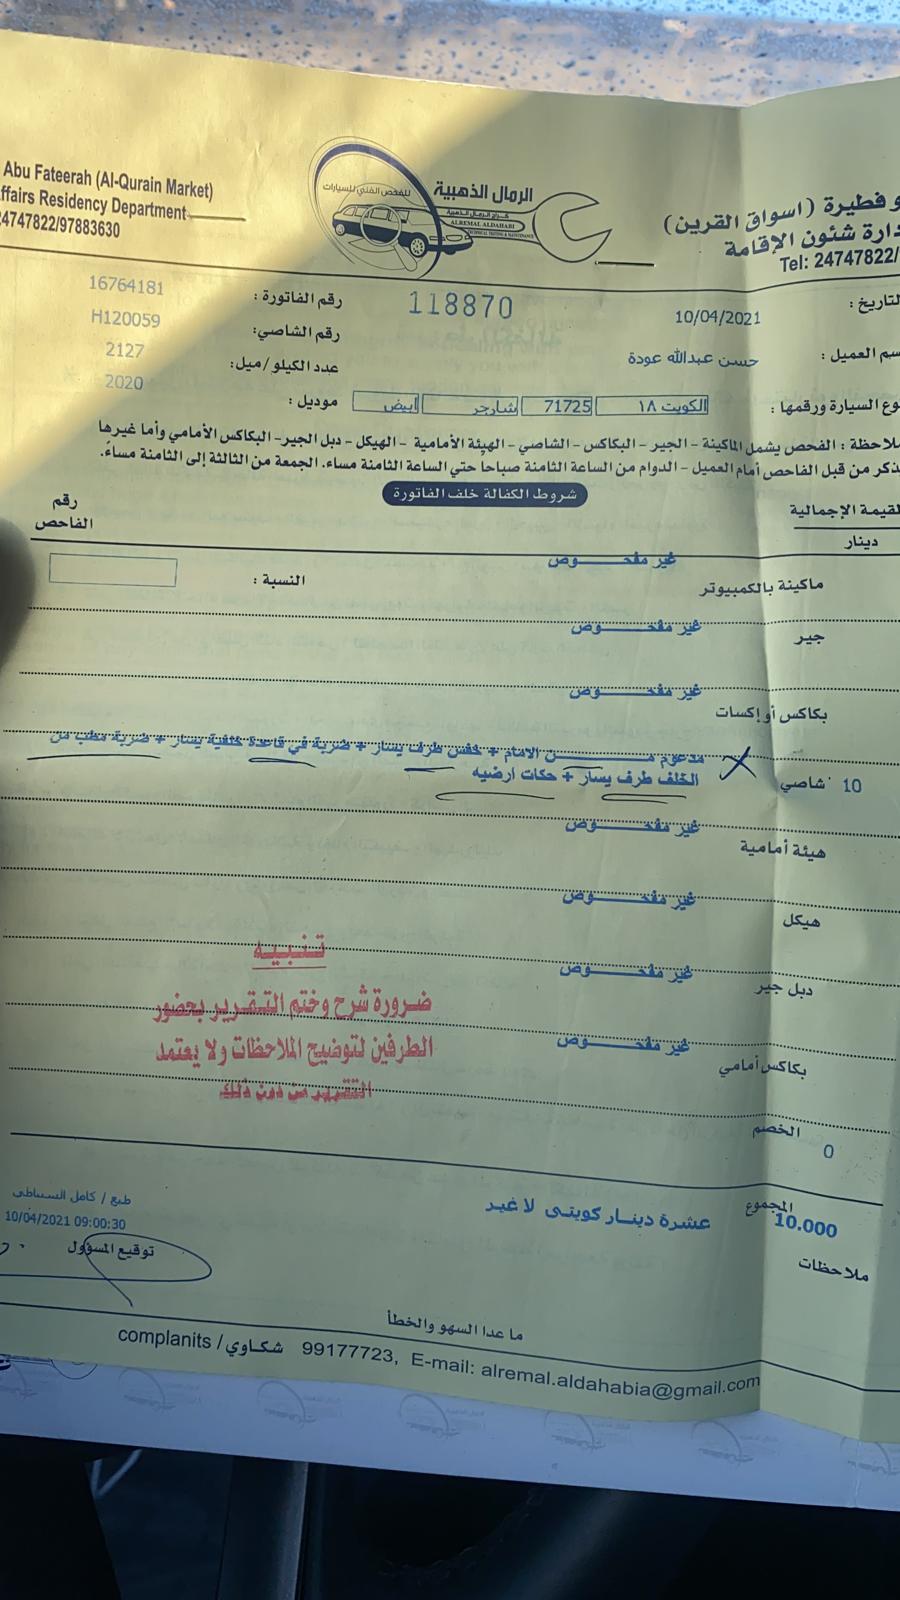 Abu Fateerah (Al-Qurain Market)
ffairs Residency Department
24747822/97883630
للفحص الفني للسيارات
الرمال الذهبية
كراج الرمال الذهبية
ALREMAL ALDAHABI
TECHNICAL TESTING & MAINTENANCE
و فطيرة (اسواق القرين)
دارة شئون الإقامة
Tel: 24747822/
لتاريخ :
10/04/2021
118870
رقم الفاتورة :
16764181
سم العميل :
حسن عبدالله عودة
رقم الشاصي:
H120059
عدد الكيلو/ميل:
2127
وع السيارة ورقمها :
الكويت ١٨
71725
شارجر
ابيض
موديل :
2020
لاحظة : الفحص يشمل الماكينة - الجير - البكاكس - الشاصي - الهيئة الأمامية - الهيكل - دبل الجير- البكاكس الأمامي وأما غيرها
ذكر من قبل الفاحص أمام العميل - الدوام من الساعة الثامنة صباحا حتي الساعة الثامنة مساء. الجمعة من الثالثة إلى الثامنة مساءً.
شروط الكفالة خلف الفاتورة
لقيمة الإجمالية
دينار
رقم
الفاحص
ماكينة بالكمبيوتر
غير مفحــــوص
النسبة :
جير
غير مفحــــوص
بكاكس أو إكسات
غير مفحــــوص
10
شاصي
مدعوم مــــن الامام + خفس طرف يسار + ضربة في قاعدة خلفية يسار + ضربة مطب من
الخلف طرف يسار + حكات ارضيه
هيئة أمامية
غير مفحــــوص
هيكل
غير مفحــــوص
دبل جير
غير مفحــــوص
بكاكس أمامي
غير مفحــــوص
تـنـبـيـه
ضرورة شرح وختم التـقـرير بحضور
الطرفين لتوضيح الملاحظات ولا يعتمد
التقرير من دون ذلك
الخصم
0
المجموع
10.000
عشرة دينـار كويتى لا غير
طبع / كامل السنباطى
10/04/2021 09:00:30
توقيع المسؤول
ملاحظات
ما عدا السهو والخطأ
complanits / شكـاوي 99177723, E-mail: alremal.aldahabia@gmail.com